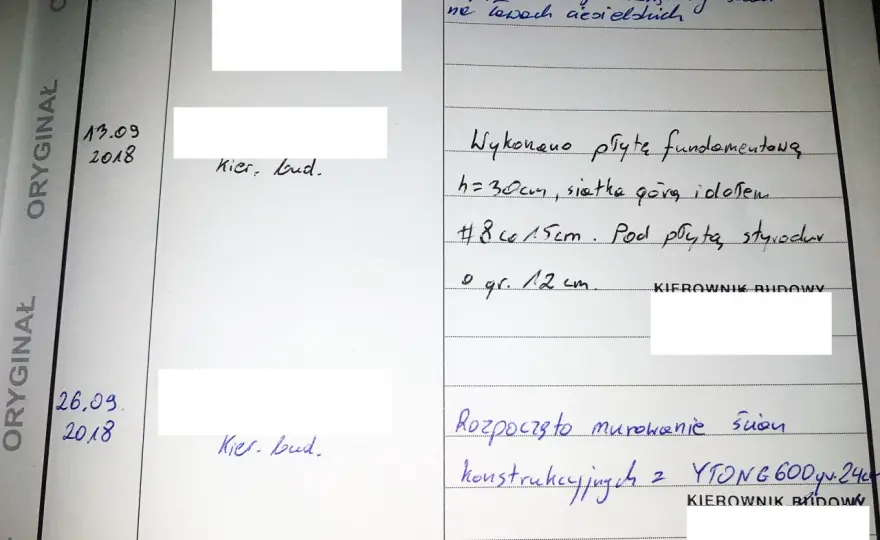 na ławach ciesielskich
ORYGINAŁ
13.09
2018
Kier. bud.
Wykonano płytę fundamentową
h=30cm, siatka górą i dołem
#8 co 15cm. Pod płytą styrodur
o gr. 12 cm.
KIEROWNIK BUDOWY
ORYGINAŁ
26.09.
2018
Kier. bud.
Rozpoczęto murowanie ścian
konstrukcyjnych z YTONG 600 gr. 24cm
KIEROWNIK BUDOWY